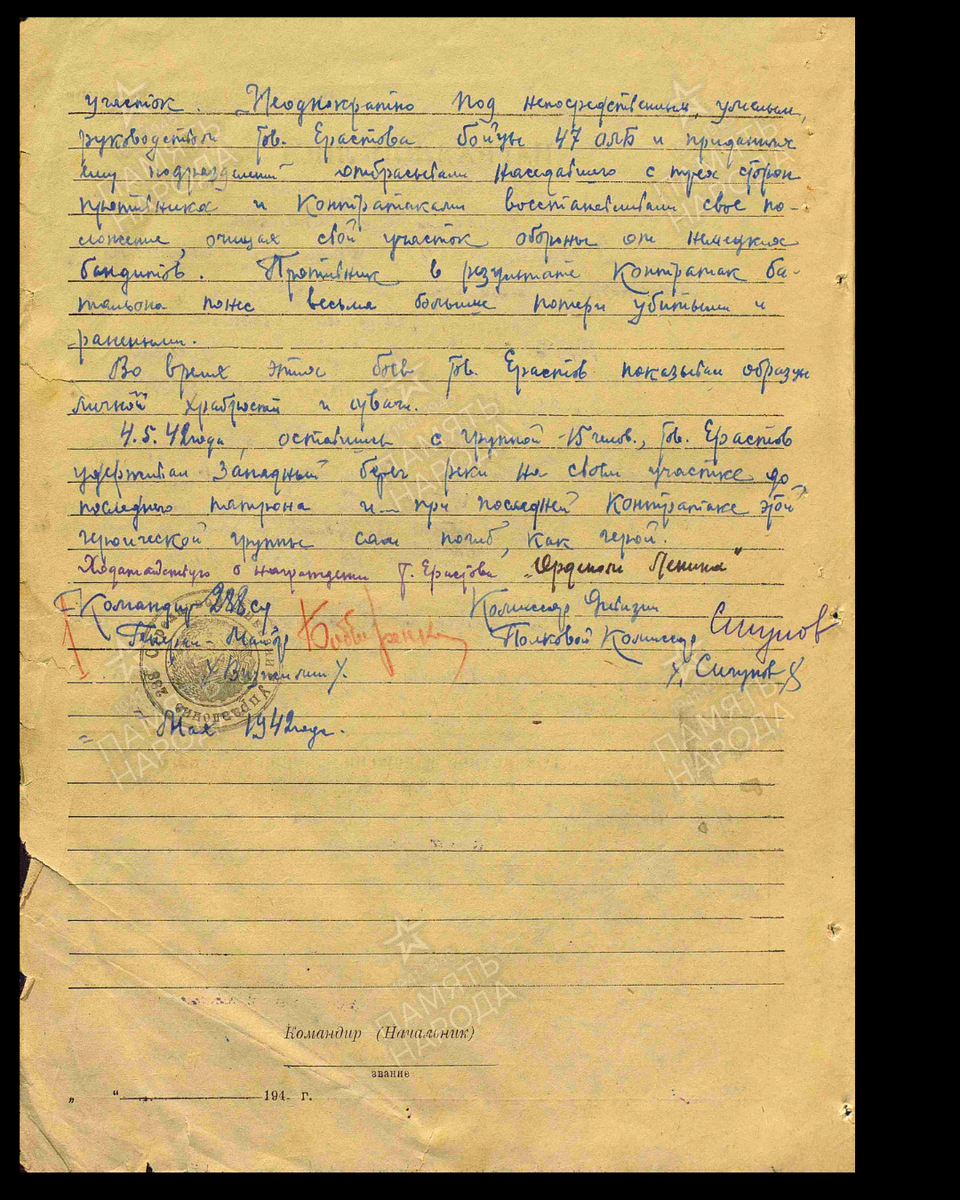 участок. Неоднократно под непосредственным, умелым,
руководством тов. Ерастова бойцы 47 ОЛБ и приданных
ему подразделений отбрасывали наседавшего с трех сторон
противника и контратаками восстанавливали свое по-
ложение, очищая свой участок обороны от немецких
бандитов. Противник в результате контратак ба-
тальона понес весьма большие потери убитыми и
ранеными.
Во время этих боев тов. Ерастов показывал образцы
личной храбрости и отваги.
4.5.42 года, оставшись с группой 15 челов., тов. Ерастов
удерживал Западный берег реки на своем участке до
последнего патрона и при последней контратаке этой
героической группы сам погиб, как герой.
Ходатайствую о награждении т. Ерастова „Орденом Ленина"
Командир 288 сд Комиссар Дивизии
Генерал-Майор Полковой Комиссар
/ / / Сигунов /
7 Мая 1942 года.
Командир (Начальник)
звание
„ “ 194 г.
ПАМЯТЬ
НАРОДА